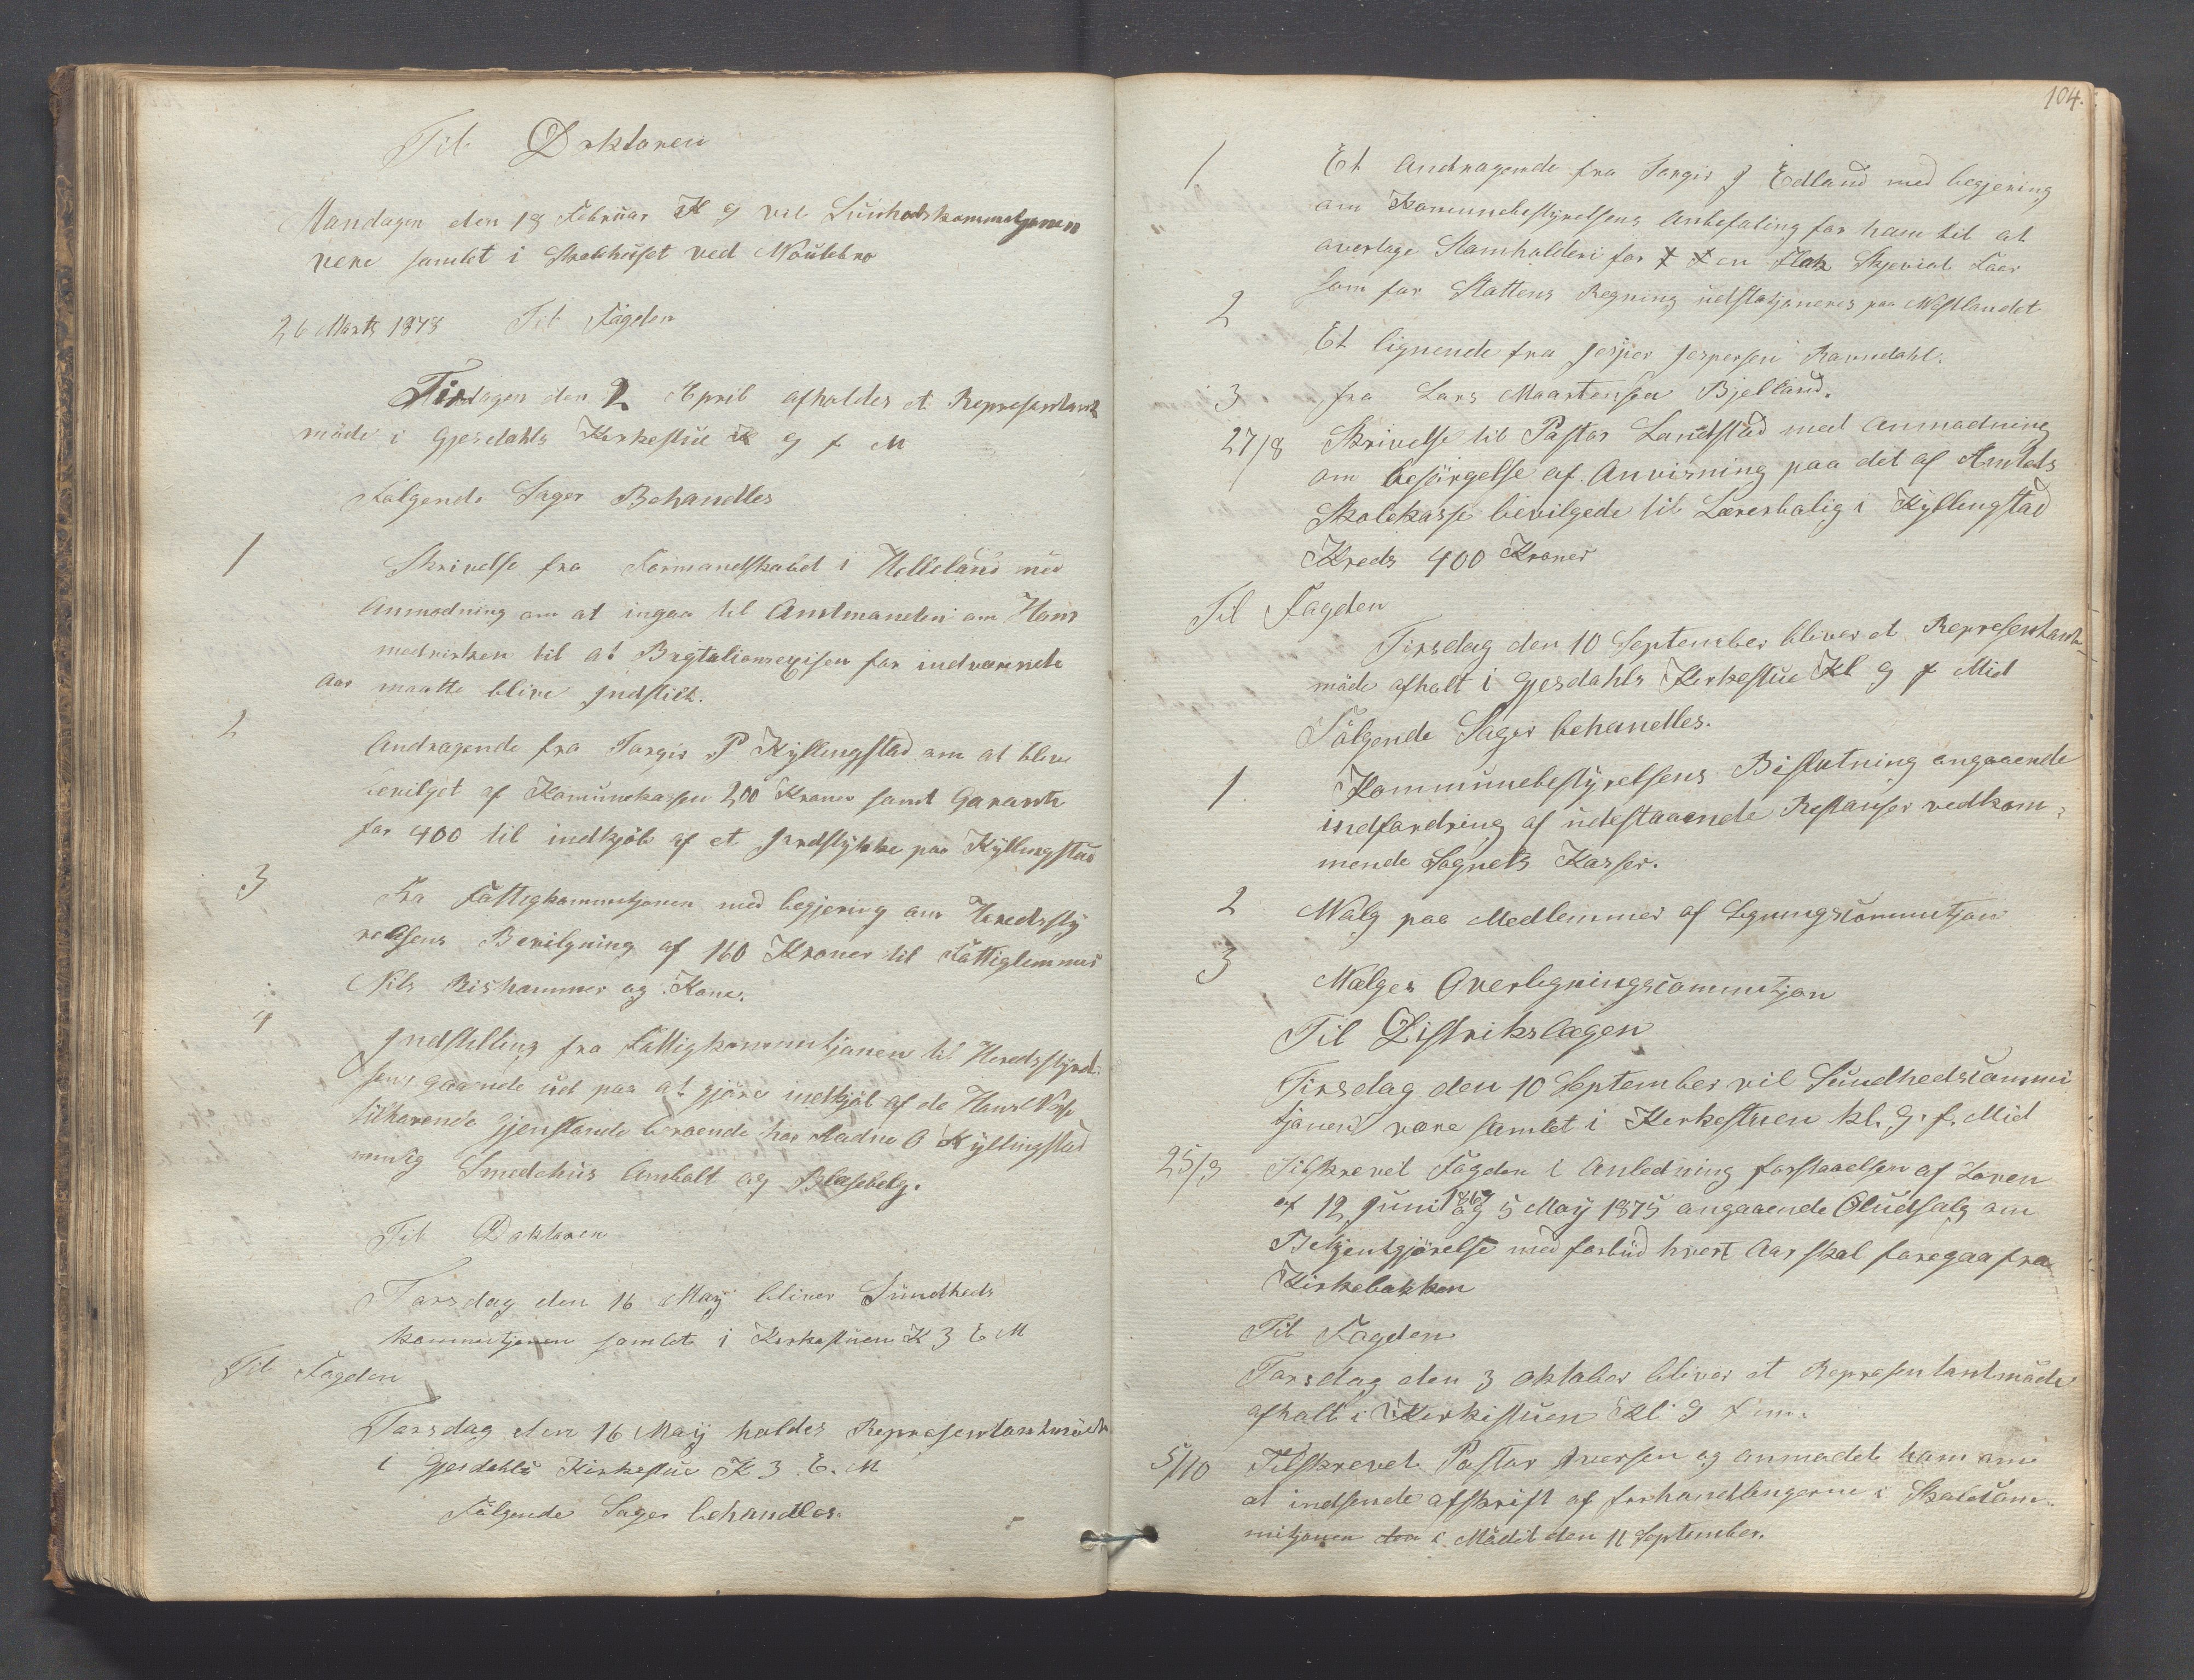 Til Doktoren
Mandagen den 18 Februar Kl 9 vil Sunhedskommitjonen
vere samlet i Skolehuset ved Noulebro
26 Marts 1878 Til Fogden
Tirsdagen den 2 April afholdes et Represantant
möde i Gjesdahls Kirkestue Kl 9 f M
Fölgende Sager Behandles
1 Skrivelse fra Formandskabet i Helleland med
Anmodning om at ingaa til Amtmanden om Hans
medvirken til at Bygtalionsexisen for indværende
Aar maatte blive Indstilt.
2 Andragende fra Torgir P Kyllingstad om at blive
bevilget af Komunekassen 200 Kroner samt Garanti
for 400 til indkjöb af et Jordstykke paa Kyllingstad
3 Fra Fattigkommitjonen med begjering om Heredssty
relsens Bevilgning af 160 Kroner til Fattiglemmet
Nils Rishammer og Kone.
4 Indstilling fra Fattigkommitjonen til Heredsstyrel
sens gaaende ud paa at gjöre indkjöb af de Hans
tilhörende Gjenstande beroende hos Aadne O Kyllingstad
nemlig Smedehus Ambolt og Blasebelg.
Til Doktoren
Torsdag den 16 May bliver Sundheds
kommitjonen samlet i Kirkestuen K 3 E M
Til Fogden
Torsdag den 16 May holdes Represantantmöde
i Gjesdahls Kirkestue K 3 E. M
Fölgende Sager behandles.
104.
1 Et Andragende fra Torgir J Edland med begjering
om Komunebestyrelsens Anbefaling for ham til at
overtage Stamholderi for en Flok Skjeviot Faar
som for Stattens Regning udstatjoneres paa Vestlandet
2 Et lignende fra Jesper Jespersen Ravndahl.
3 fra Lars Maartensen Bjelland.
27/8 Skrivelse til Pastor Landstad med Anmodning
om besörgelse af Anvisning paa det af Amtets
Skolekasse bevilgede til Lærerbolig i Kyllingstad
Kreds 400 Kroner
Til Fogden
Tirsdag den 10 September bliver et Representant
möde afholt i Gjesdahls Kirkestue Kl 9 f Mid
Fölgende Sager behandles.
1. Kommunebestyrelsens Beslutning angaaende
indfordring af udestaaende Restanser vedkom
mende Sognets Kasser.
2 Valg paa Medlemmer af Ligningscommitjon
3 Vælges Overligningscommitjon
Til Distrikslægen
Tirsdag den 10 September vil Sundhedscommi
tjonen være samlet i Kirkestuen kl. 9. f. Mid
25/9 Tilskrevet Fogden i Anledning forstaaelsen af Loven
af 12 Juni 1869 og 5 May 1875 angaaende Öludsalg om
Bekjentgjörelse med forbud hvert Aar skal foregaa fra
Kirkebakken
Til Fogden
Torsdag den 3 Oktober bliver et Representantmöde
afholt i Kirkestuen Kl 9 f m.
5/10 Tilskrevet Pastor Iversen og anmodet ham om
at indsende afskrift af forhandlingerne i Skolecom
mitjonen den i Mödet den 11 September.